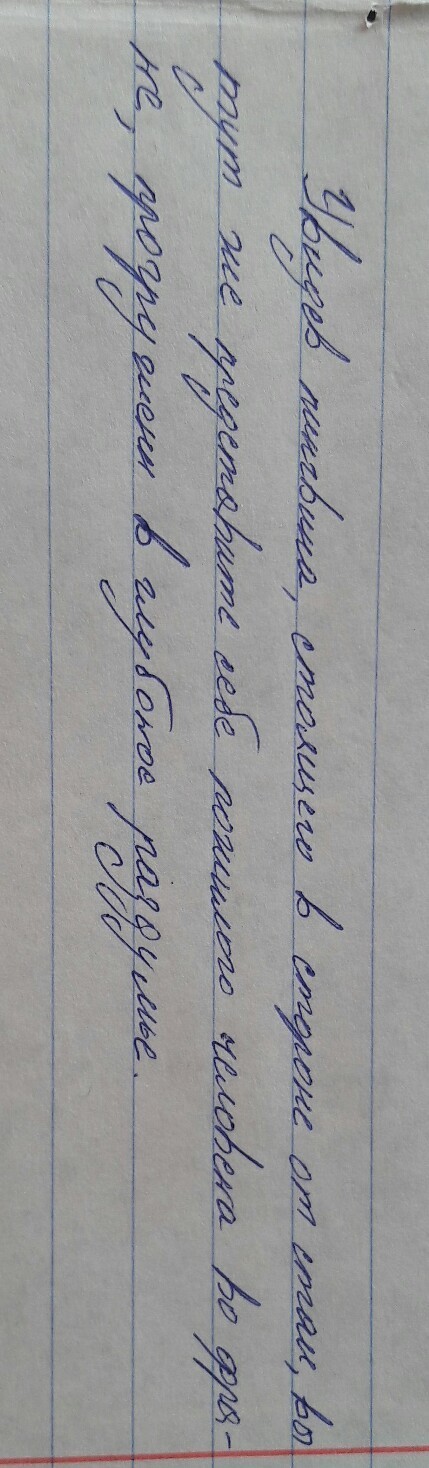 Увидев пингвина, стоящего в стороне от стаи, вы
тут же представите себе пожилого человека во фра-
ке, погружен в глубокое раздумье.